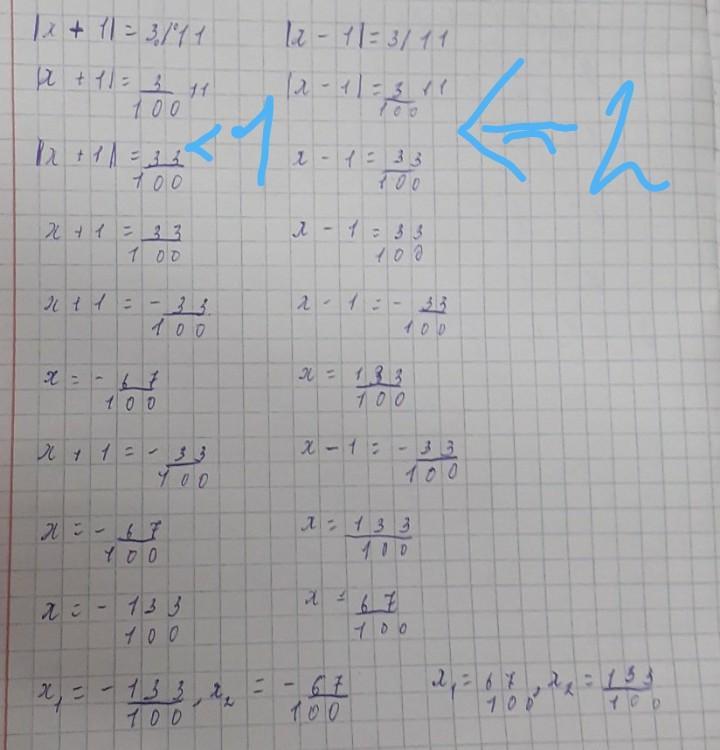 |x + 1| = 3/11
|x + 1| = 3/100 11
|x + 1| = 33/100
x + 1 = 33/100
x + 1 = - 33/100
x = - 67/100
x + 1 = - 33/100
x = - 67/100
x = - 133/100
x₁ = - 133/100, x₂ = - 67/100
< 1
|x - 1| = 3/11
|x - 1| = 3/100 11
x - 1 = 33/100
x - 1 = 33/100
x - 1 = - 33/100
x = 133/100
x - 1 = - 33/100
x = 133/100
x = 67/100
x₁ = 67/100, x₂ = 133/100
← 2